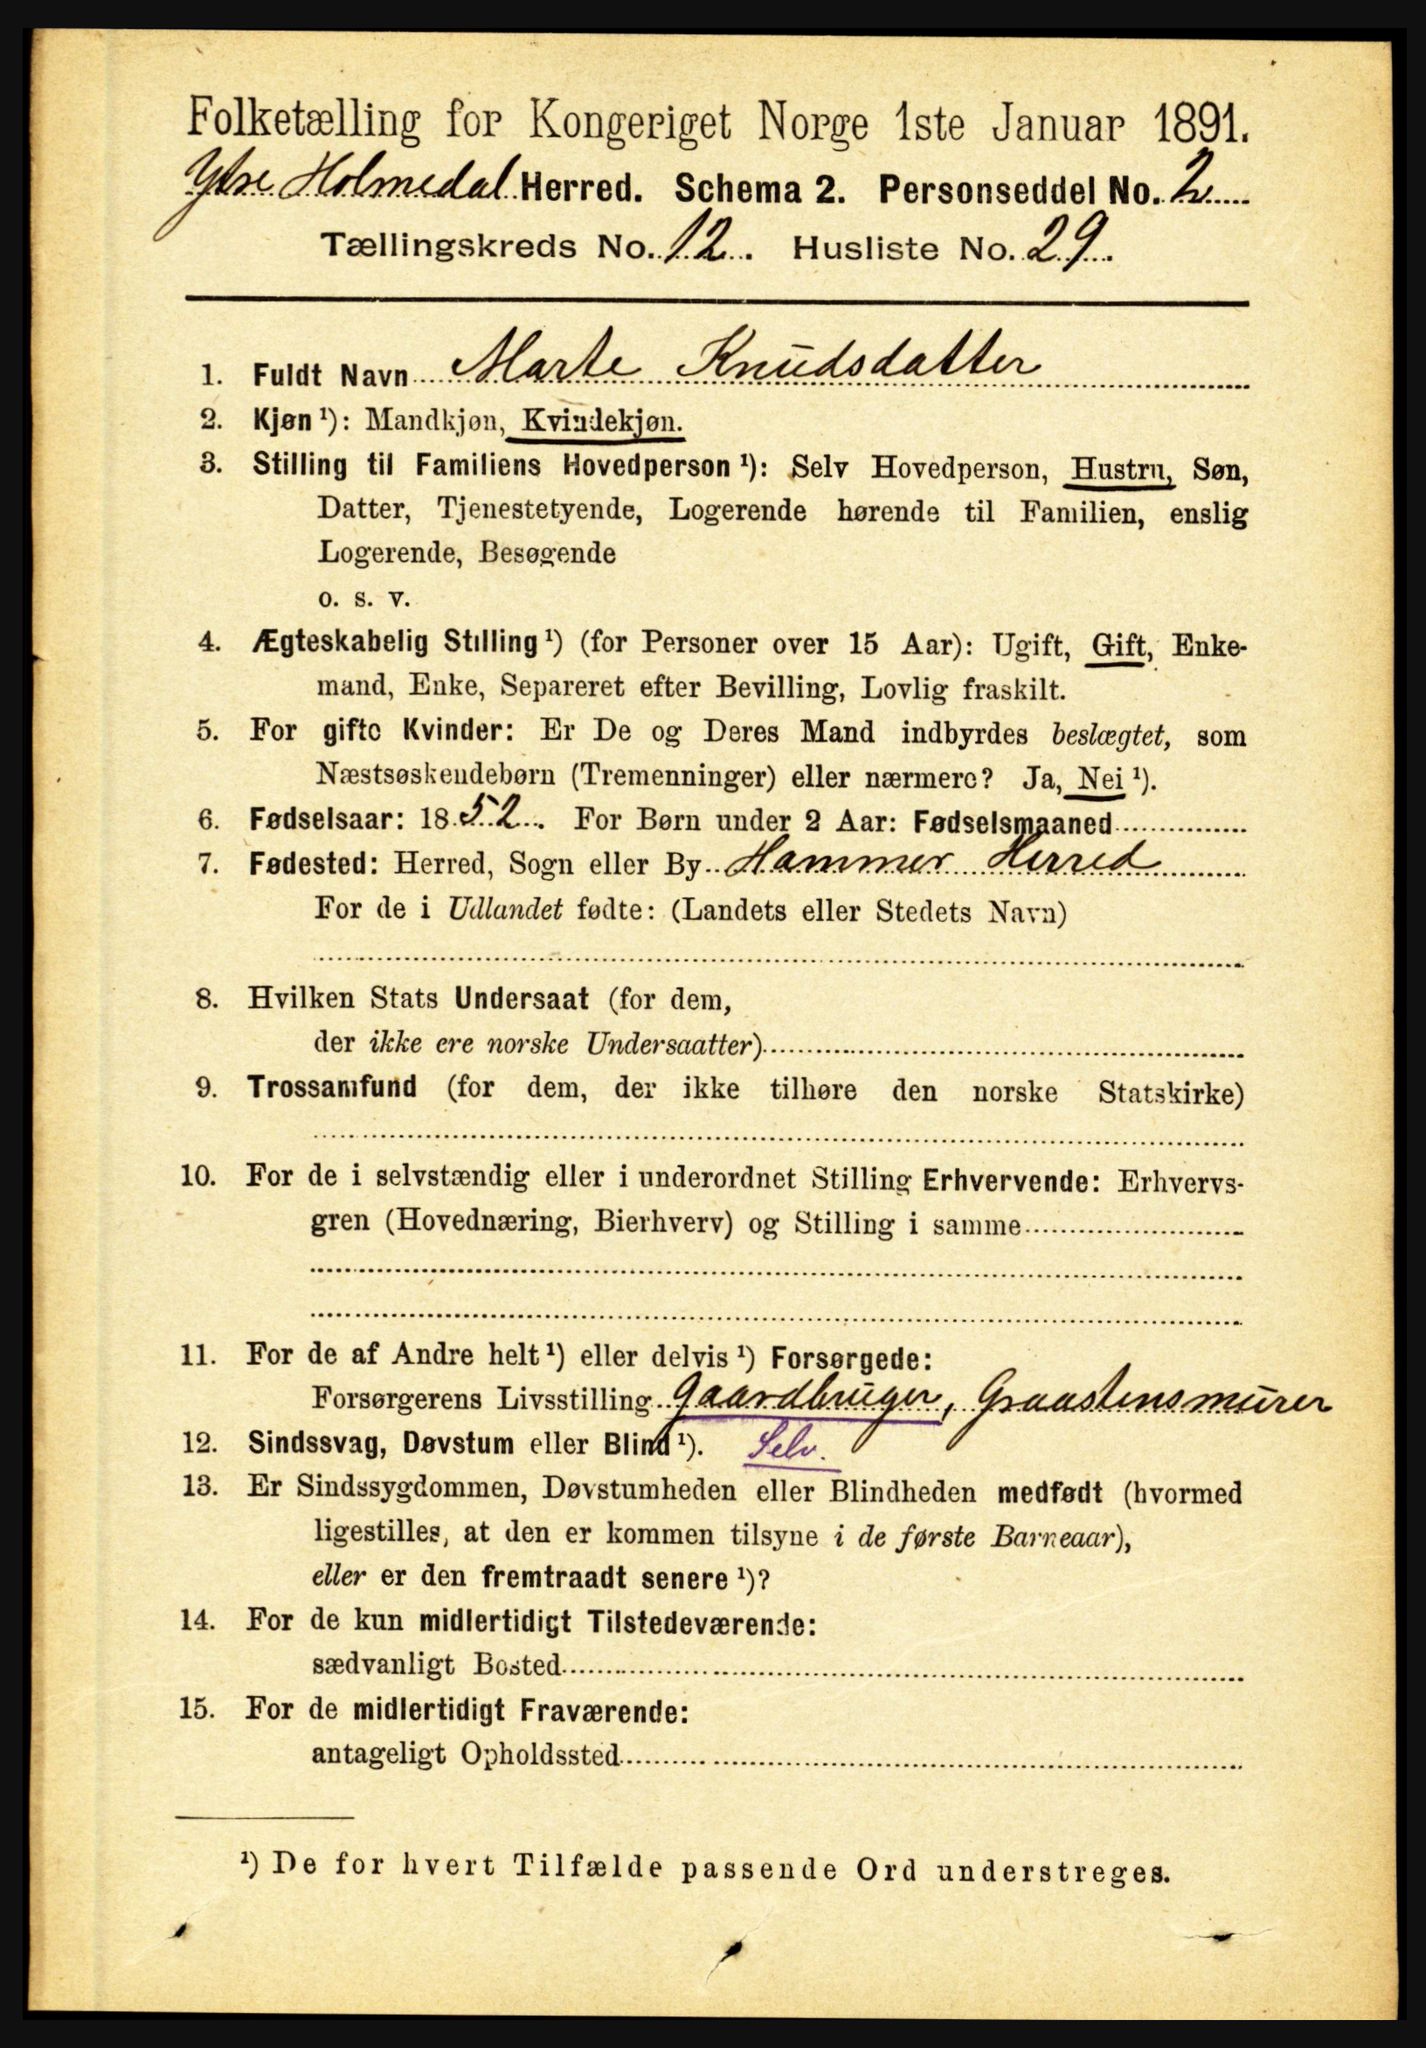 Folketælling for Kongeriget Norge 1ste Januar 1891.
Ytre Holmedal Herred. Schema 2. Personseddel No. 2
Tællingskreds No. 12. Husliste No. 29.
1. Fuldt Navn Marte Knudsdatter
2. Kjøn ¹): Mandkjøn, Kvindekjøn.
3. Stilling til Familiens Hovedperson ¹): Selv Hovedperson, Hustru, Søn,
Datter, Tjenestetyende, Logerende hørende til Familien, enslig
Logerende, Besøgende
o. s. v.
4. Ægteskabelig Stilling ¹) (for Personer over 15 Aar): Ugift, Gift, Enke-
mand, Enke, Separeret efter Bevilling, Lovlig fraskilt.
5. For gifte Kvinder: Er De og Deres Mand indbyrdes beslægtet, som
Næstsøskendebørn (Tremenninger) eller nærmere? Ja, Nei ¹).
6. Fødselsaar: 1852. For Børn under 2 Aar: Fødselsmaaned
7. Fødested: Herred, Sogn eller By Hammer Herred
For de i Udlandet fødte: (Landets eller Stedets Navn)
8. Hvilken Stats Undersaat (for dem,
der ikke ere norske Undersaatter)
9. Trossamfund (for dem, der ikke tilhøre den norske Statskirke)
10. For de i selvstændig eller i underordnet Stilling Erhvervende: Erhvervs-
gren (Hovednæring, Bierhverv) og Stilling i samme
11. For de af Andre helt ¹) eller delvis ¹) Forsørgede:
Forsørgerens Livsstilling Gaardbruger, Graastensmurer
12. Sindssvag, Døvstum eller Blind ¹). Selv.
13. Er Sindssygdommen, Døvstumheden eller Blindheden medfødt (hvormed
ligestilles, at den er kommen tilsyne i de første Barneaar),
eller er den fremtraadt senere ¹)?
14. For de kun midlertidigt Tilstedeværende:
sædvanligt Bosted
15. For de midlertidigt Fraværende:
antageligt Opholdssted
¹) De for hvert Tilfælde passende Ord understreges.